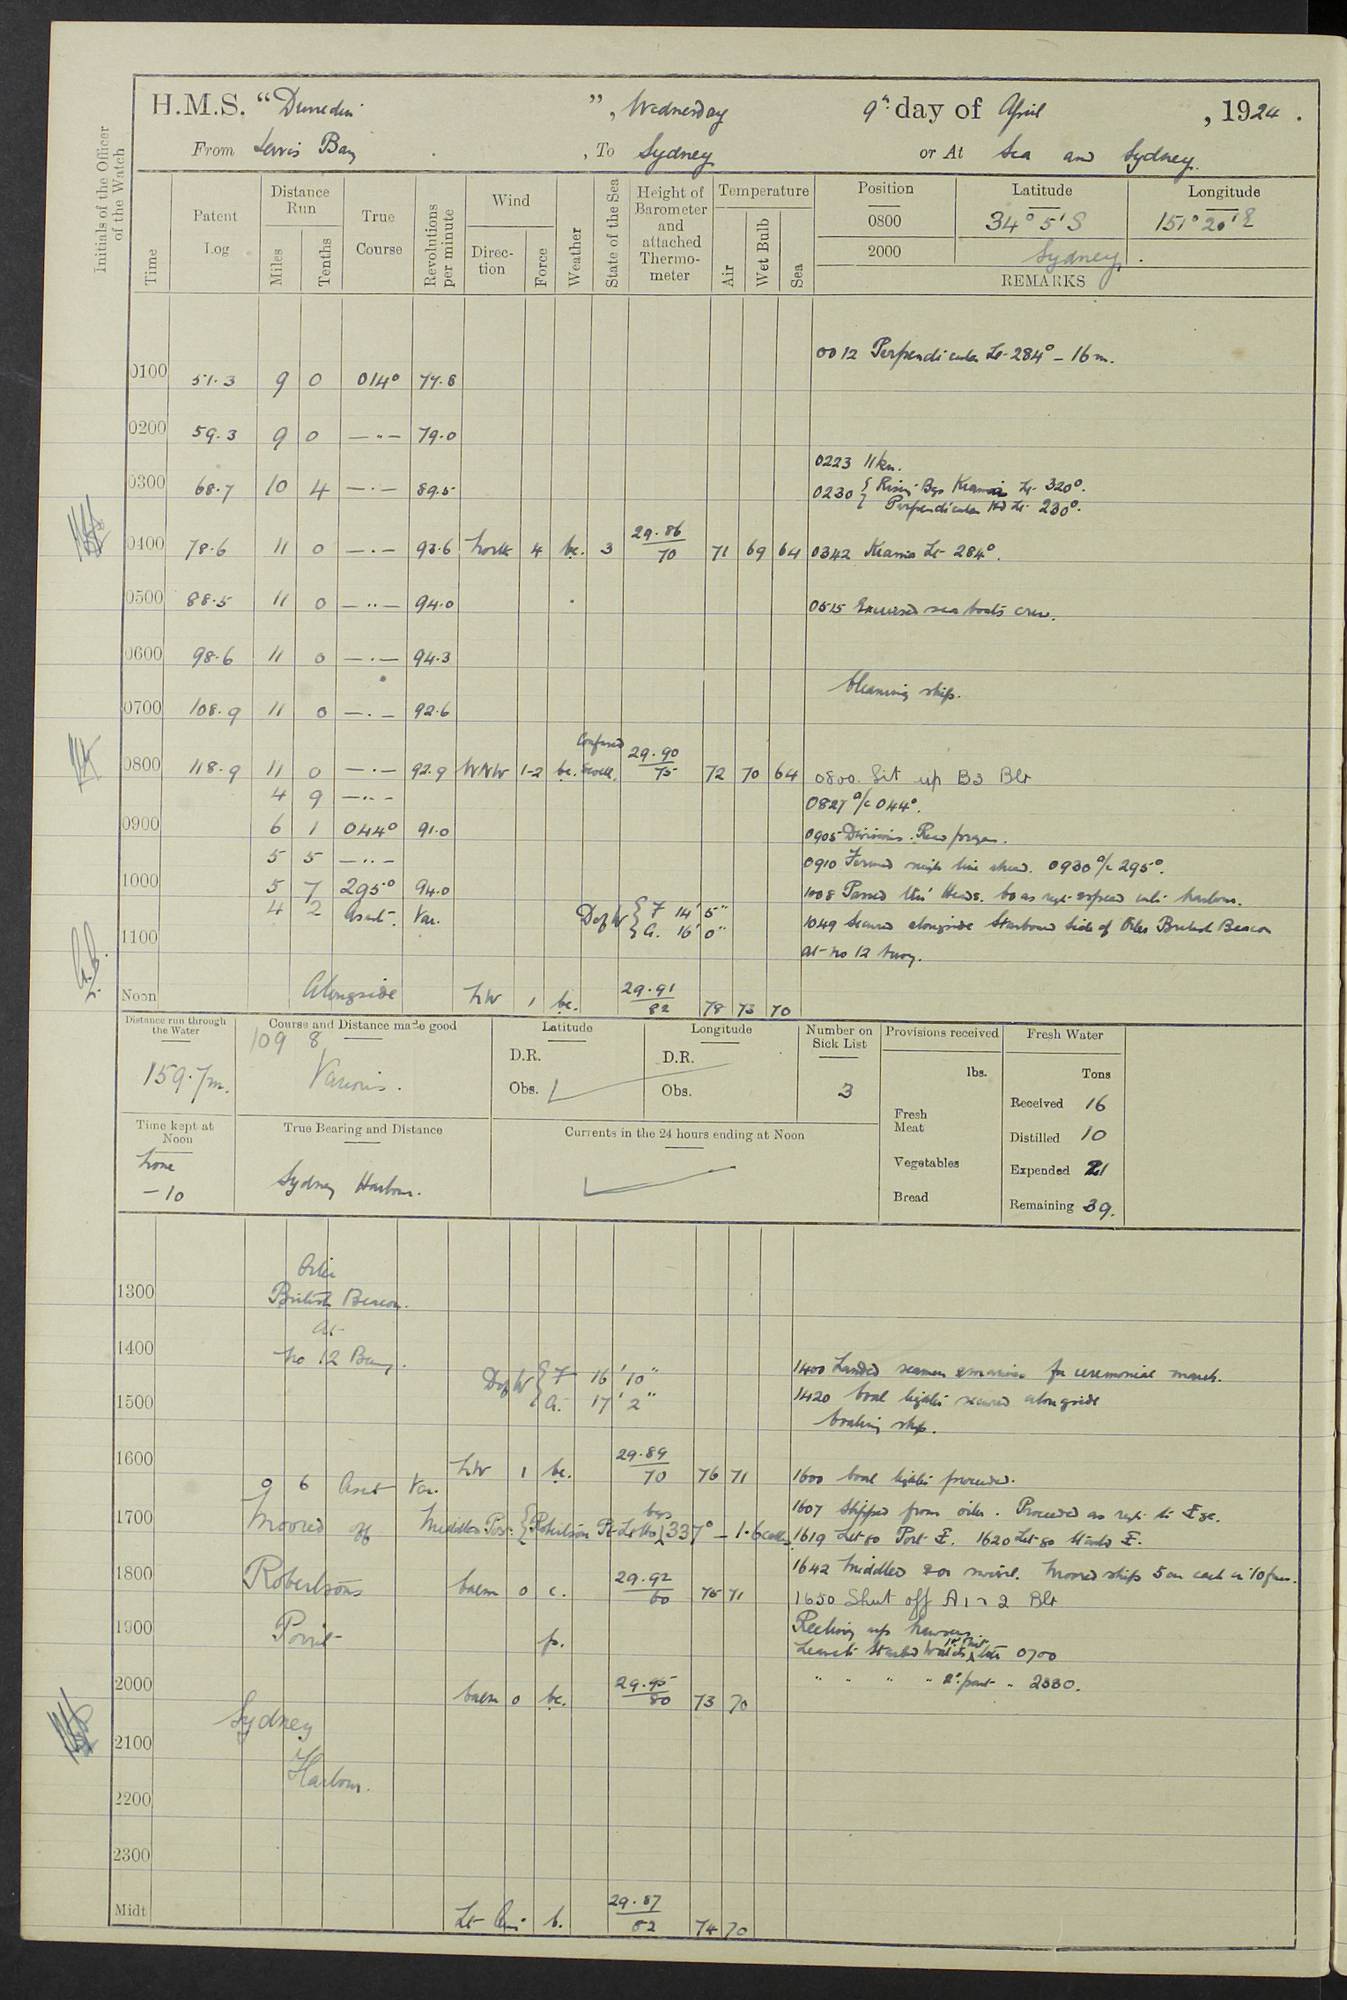 H.M.S. "Dunedin", Wednesday 9th day of April, 1924.
From Jervis Bay, To Sydney or At Sea and Sydney.
Initials of the Officer of the Watch
Time
Patent Log
Distance Run
Miles
Tenths
True Course
Revolutions per minute
Wind
Direction
Force
Weather
State of the Sea
Height of Barometer and attached Thermometer
Temperature
Air
Wet Bulb
Sea
Position Latitude Longitude
0800 34° 5' S 151° 20' E
2000 Sydney.
REMARKS
0012 Perpendicular Lt 284° – 16 m.
0100 51.3 9 0 014° 77.8
0200 59.3 9 0 —"— 79.0
0223 11 kn.
0300 68.7 10 4 —"— 89.5
0230 { Kiama Lt. 320°.
Perpendicular Hd Lt. 230°.
0400 78.6 11 0 —"— 93.6 North 4 bc. 3 29.86 70 71 69 64 0342 Kiama Lt 284°.
0500 88.5 11 0 —"— 94.0
0515 Exercised sea boats crew.
0600 98.6 11 0 —"— 94.3
Cleaning ship.
0700 108.9 11 0 —"— 92.6
0800 118.9 11 0 —"— 92.9 WNW 1-2 bc. Confused Swell. 29.90 75 72 70 64 0800 Lit up B3 Blr
4 9 —"— 0827 a/c 044°.
0900 6 1 044° 91.0 0905 Divisions. Read prayers.
5 5 —"— 0910 Formed single line ahead. 0930 a/c 295°.
1000 5 7 295° 94.0 1008 Passed thro' Heads. Co as reqt. & speed into harbour.
4 2 As reqt. Var. Dft W { F 14' 5"
A. 16' 0"
1049 Secured alongside Starboard Side of Oiler British Beacon
1100 at No 12 buoy.
Noon Alongside NW 1 bc. 29.91 82 78 73 70
Distance run through the Water
159.7 m.
Course and Distance made good
109 8
Various.
Latitude
D.R.
Obs.
Longitude
D.R.
Obs.
Number on Sick List
3
Provisions received
lbs.
Fresh Meat
Vegetables
Bread
Fresh Water
Tons
Received 16
Distilled 10
Expended 21
Remaining 39.
Time kept at Noon
Zone
–10
True Bearing and Distance
Sydney Harbour.
Currents in the 24 hours ending at Noon
Oiler
1300 British Beacon.
at
1400 No 12 Buoy.
Dft W { F 16' 10"
A. 17' 2"
1400 Landed seamen & marines for ceremonial march.
1500 1420 Coal lighter secured alongside
Coaling ship.
1600 NW 1 bc. 29.89 70 76 71 1600 Coal lighter proceeded.
0 6 As reqt Var. 1607 Slipped from oiler. Proceeded as reqt. to
1700 Moored off Middled Pos: { Robertson Pt Lt Ho brg 337° – 1.6 cables. 1619 Let go Port 1620 Let go Starbd
1642 Middled & on swivel. Moored ship 5 on each in 10 fms.
1800 Robertsons calm 0 c. 29.92 60 75 71 1650 Shut off A 1 & 2 Blr
1900 Point p. Reeling up hawsers.
Leave to Starbd Watch 1st Part till 0700
2000 calm 0 bc. 29.95 80 73 70 " " " " 2nd part " 2230.
Sydney
2100
Harbour.
2200
2300
Midt Lt Airs b. 29.87 82 74 70